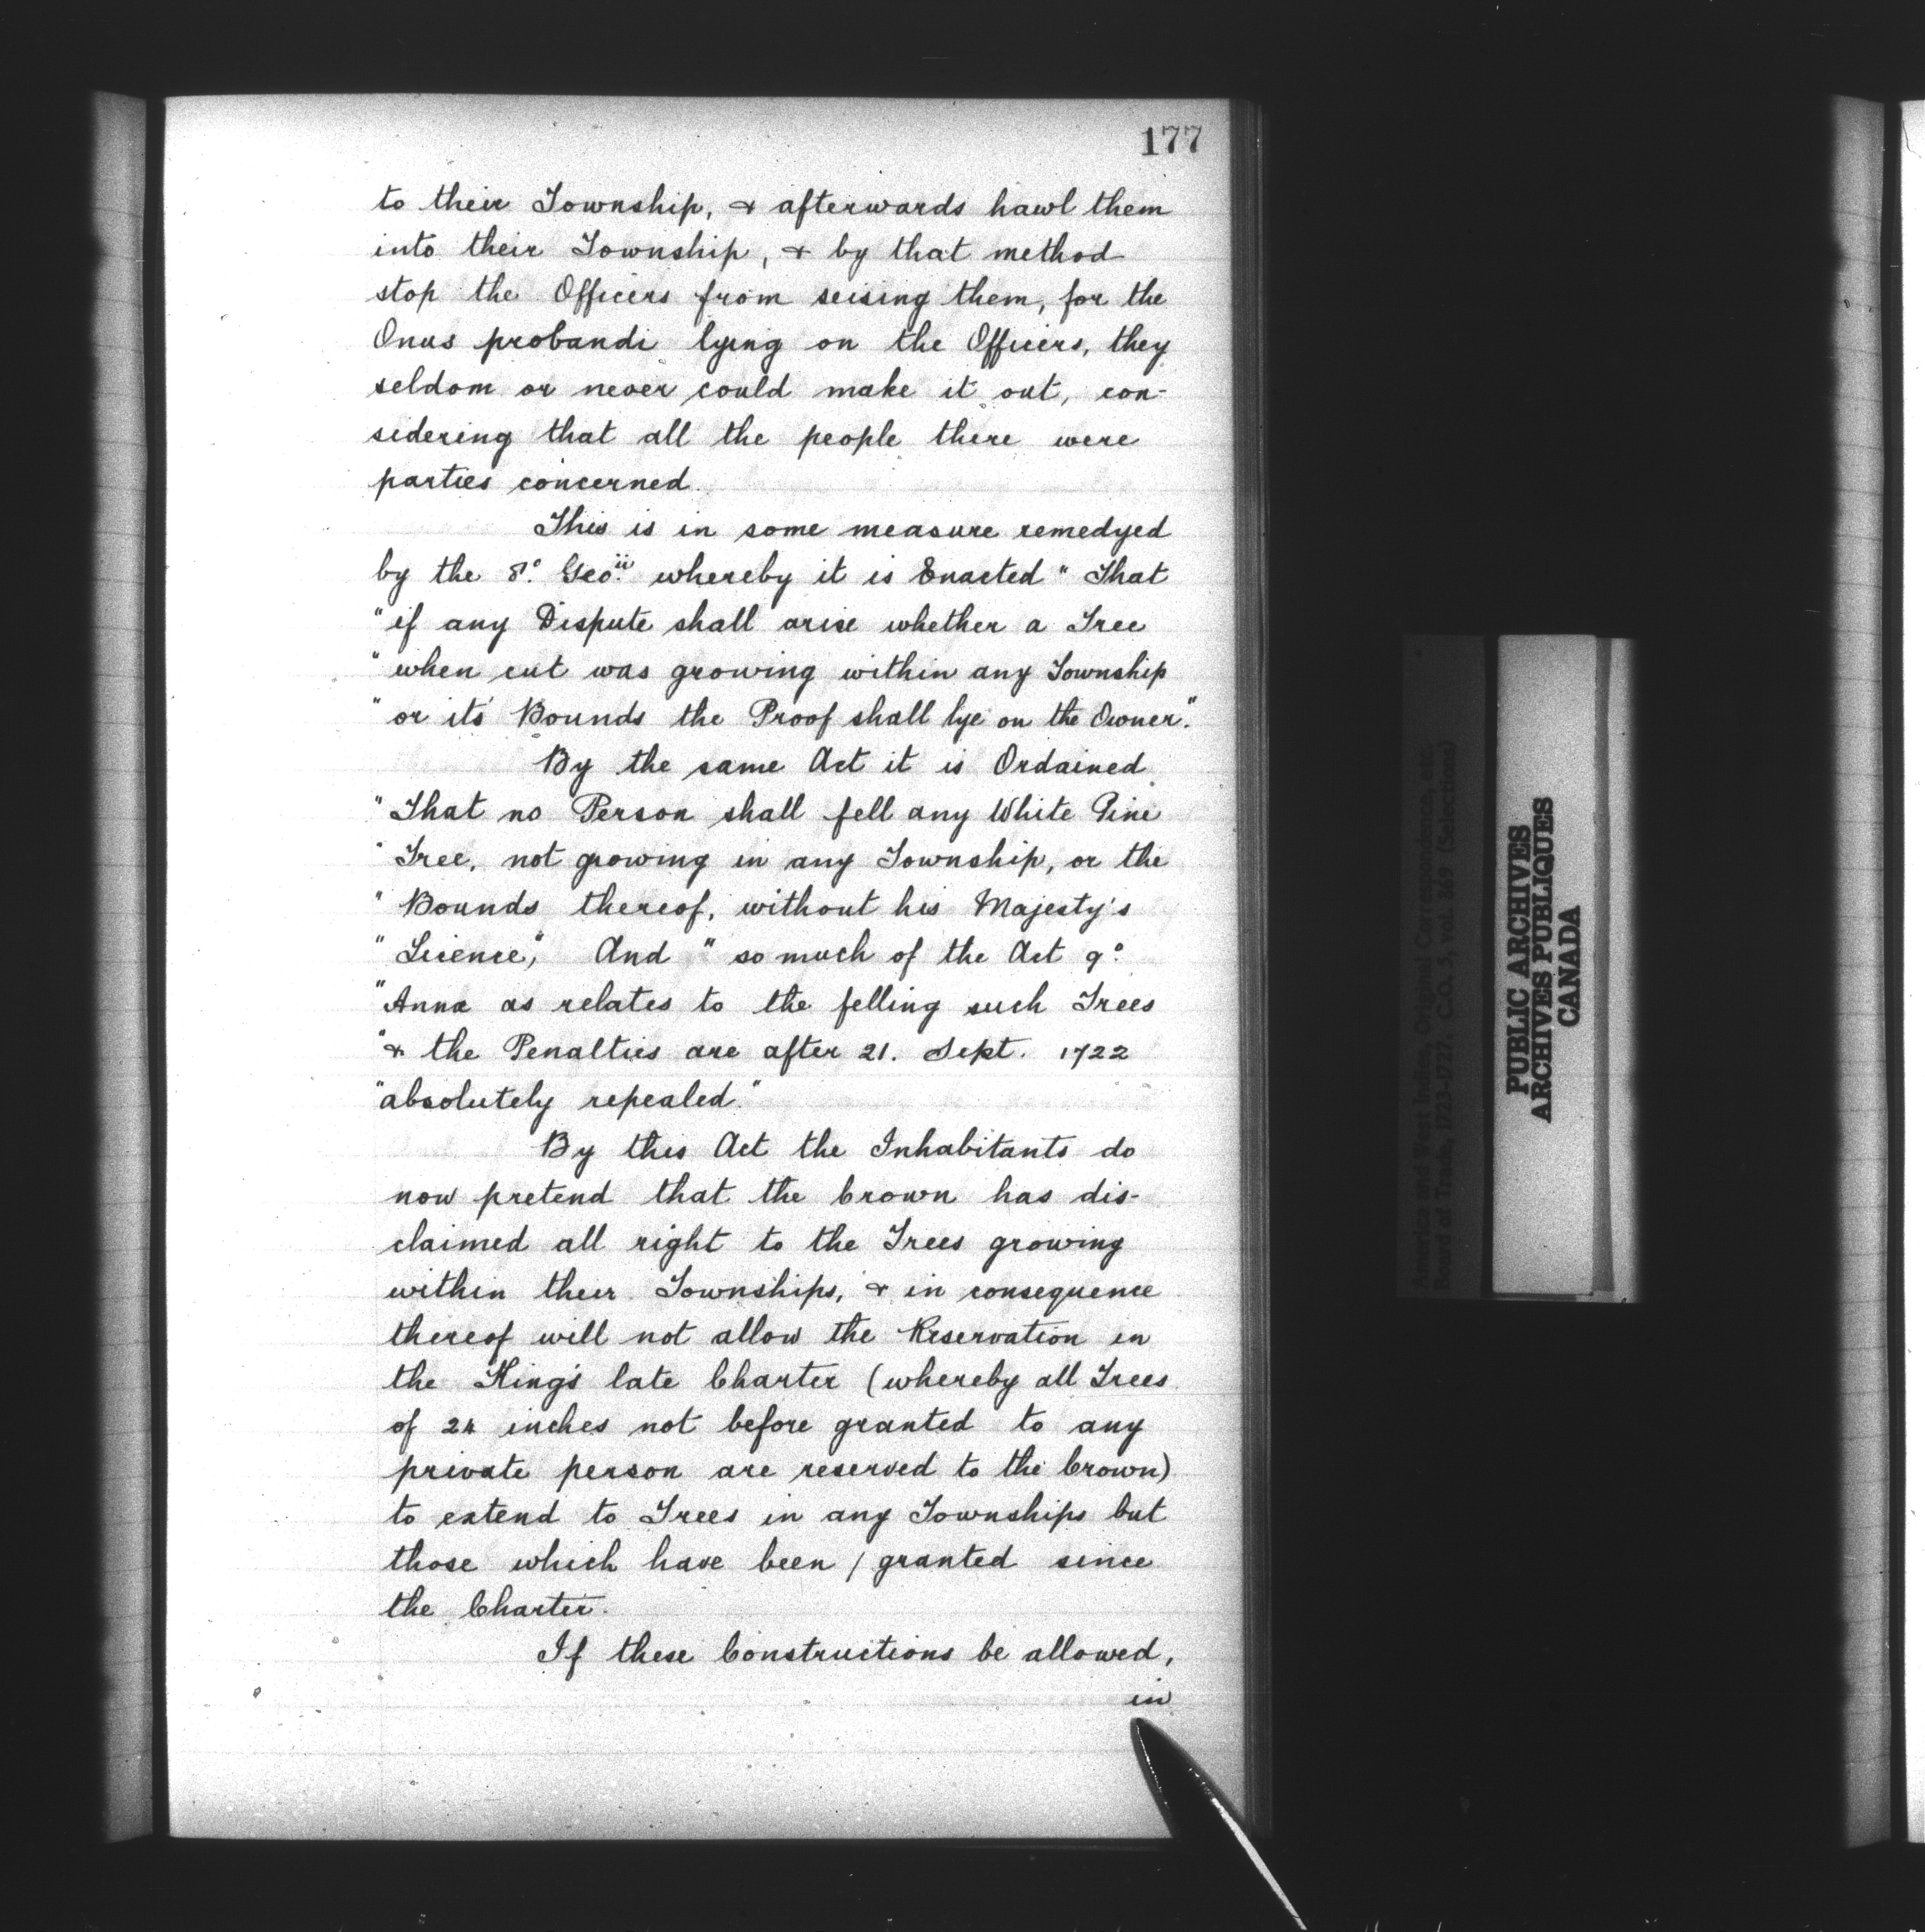 177
to their Township, & afterwards hawl them
into their Township, & by that method
stop the Officers from seising them, for the
Onus probandi lying on the Officers, they
seldom or never could make it out, con-
sidering that all the people there were
parties concerned.
This is in some measure remedyed
by the 8º. Geo.ii whereby it is Enacted "That
"if any Dispute shall arise whether a Tree
"when cut was growing within any Township
"or its Bounds the Proof shall lye on the Owner".
By the same Act it is Ordained
"That no Person shall fell any White Pine
"Tree, not growing in any Township, or the
"Bounds thereof, without his Majesty's
"Licence," And "so much of the Act 9º.
"Annæ as relates to the felling such Trees
"& the Penalties are after 21. Sept. 1722
"absolutely repealed."
By this Act the Inhabitants do
now pretend that the Crown has dis-
claimed all right to the Trees growing
within their Townships, & in consequence
thereof will not allow the Reservation in
the King's late Charter (whereby all Trees
of 24 inches not before granted to any
private person are reserved to the Crown)
to extend to Trees in any Townships but
those which have been / granted since
the Charter.
If these Constructions be allowed,
in
America and West Indies, Original Correspondence, etc.
Board of Trade, 1723-1727. C.O. 5, vol. 869 (Selections)
PUBLIC ARCHIVES
ARCHIVES PUBLIQUES
CANADA